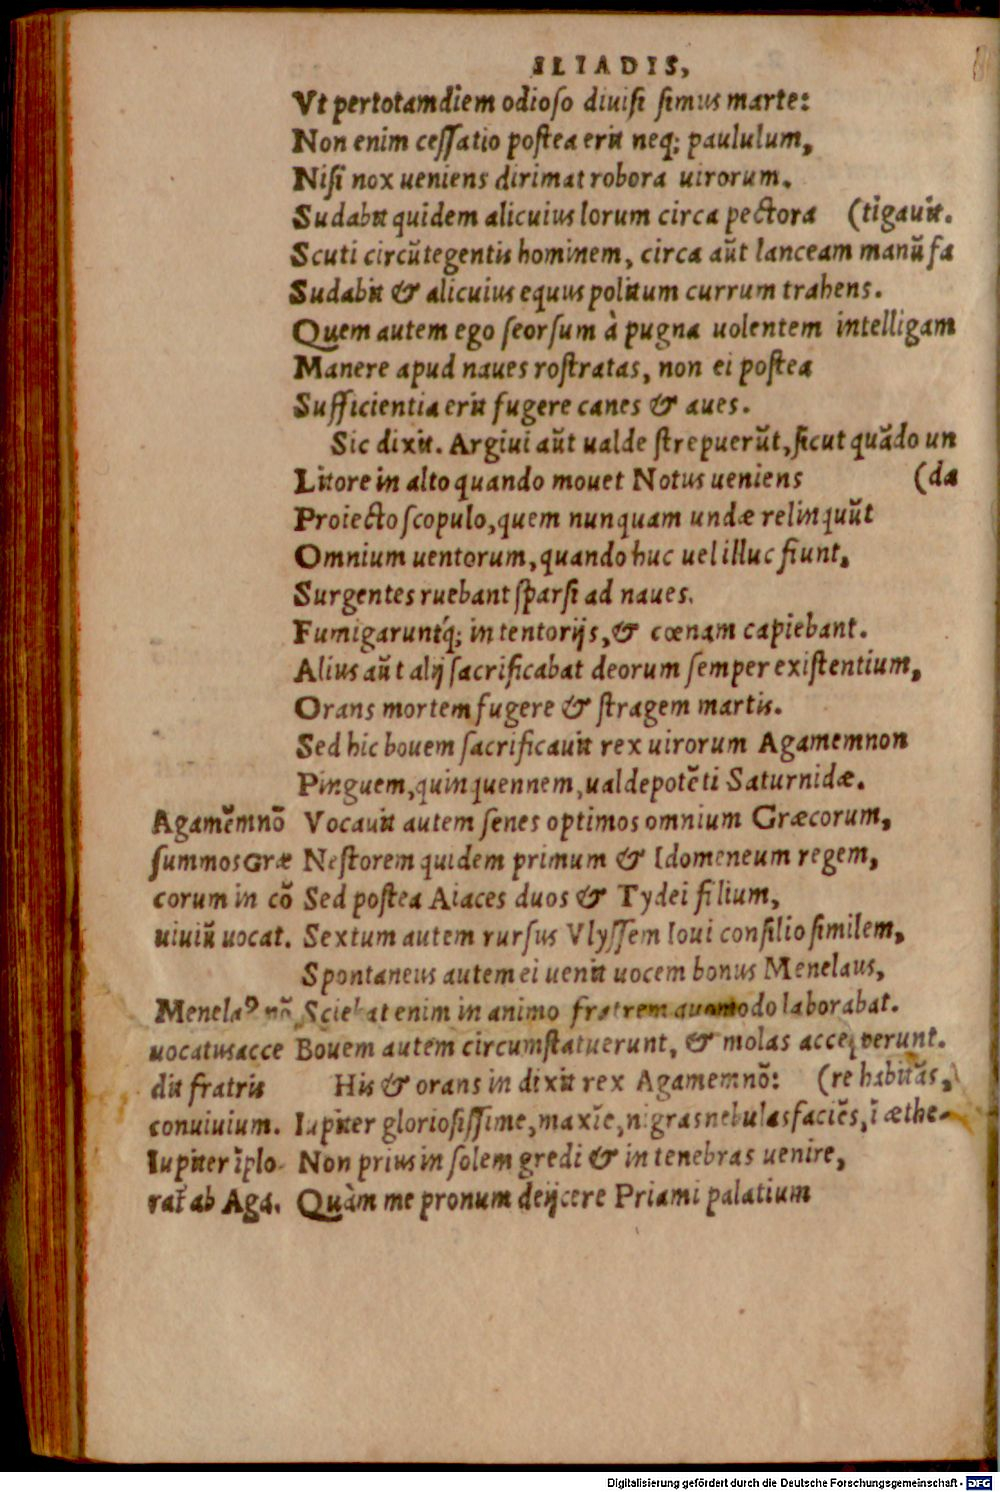 ILIADIS,
Vt pertotamdiem odioſo diuiſi ſimus marte:
Non enim ceſſatio poſtea erit neq; paululum,
Niſi nox ueniens dirimat robora uirorum.
Sudabit quidem alicuius lorum circa pectora (tigauit.
Scuti circũtegentis hominem, circa aũt lanceam manũ fa
Sudabit & alicuius equus politum currum trahens.
Quem autem ego ſeorſum à pugna uolentem intelligam
Manere apud naues roſtratas, non ei poſtea
Sufficientia erit fugere canes & aues.
Sic dixit. Argiui aũt ualde ſtrepuerũt, ſicut quãdo un
Litore in alto quando mouet Notus ueniens (da
Proiecto ſcopulo, quem nunquam undæ relinquũt
Omnium uentorum, quando huc uel illuc fiunt,
Surgentes ruebant ſparſi ad naues.
Fumigaruntq́; in tentorijs, & cœnam capiebant.
Alius aũt alij ſacrificabat deorum ſemper exiſtentium,
Orans mortem fugere & ſtragem martis.
Sed hic bouem ſacrificauit rex uirorum Agamemnon
Pinguem, quinquennem, ualdepotẽti Saturnidæ.
Agamẽmnõ Vocauit autem ſenes optimos omnium Græcorum,
ſummos Græ Neſtorem quidem primum & Idomeneum regem,
corum in cõ Sed poſtea Aiaces duos & Tydei filium,
uiuiũ uocat. Sextum autem rurſus Vlyſſem Ioui conſilio ſimilem,
Spontaneus autem ei uenit uocem bonus Menelaus,
Menelaꝰ nõ Sciebat enim in animo fratrem quomodo laborabat.
uocatus acce Bouem autem circumſtatuerunt, & molas acceperunt.
dit fratris His & orans in dixit rex Agamemnõ: (re habitãs,
conuiuium. Iupiter glorioſiſſime, maxĩe, nigras nebulas faciẽs, ĩ æthe-
Iupiter ĩplo Non prius in ſolem gredi & in tenebras uenire,
rat̃ ab Aga. Quàm me pronum deijcere Priami palatium
Digitalisierung gefördert durch die Deutsche Forschungsgemeinschaft - DFG